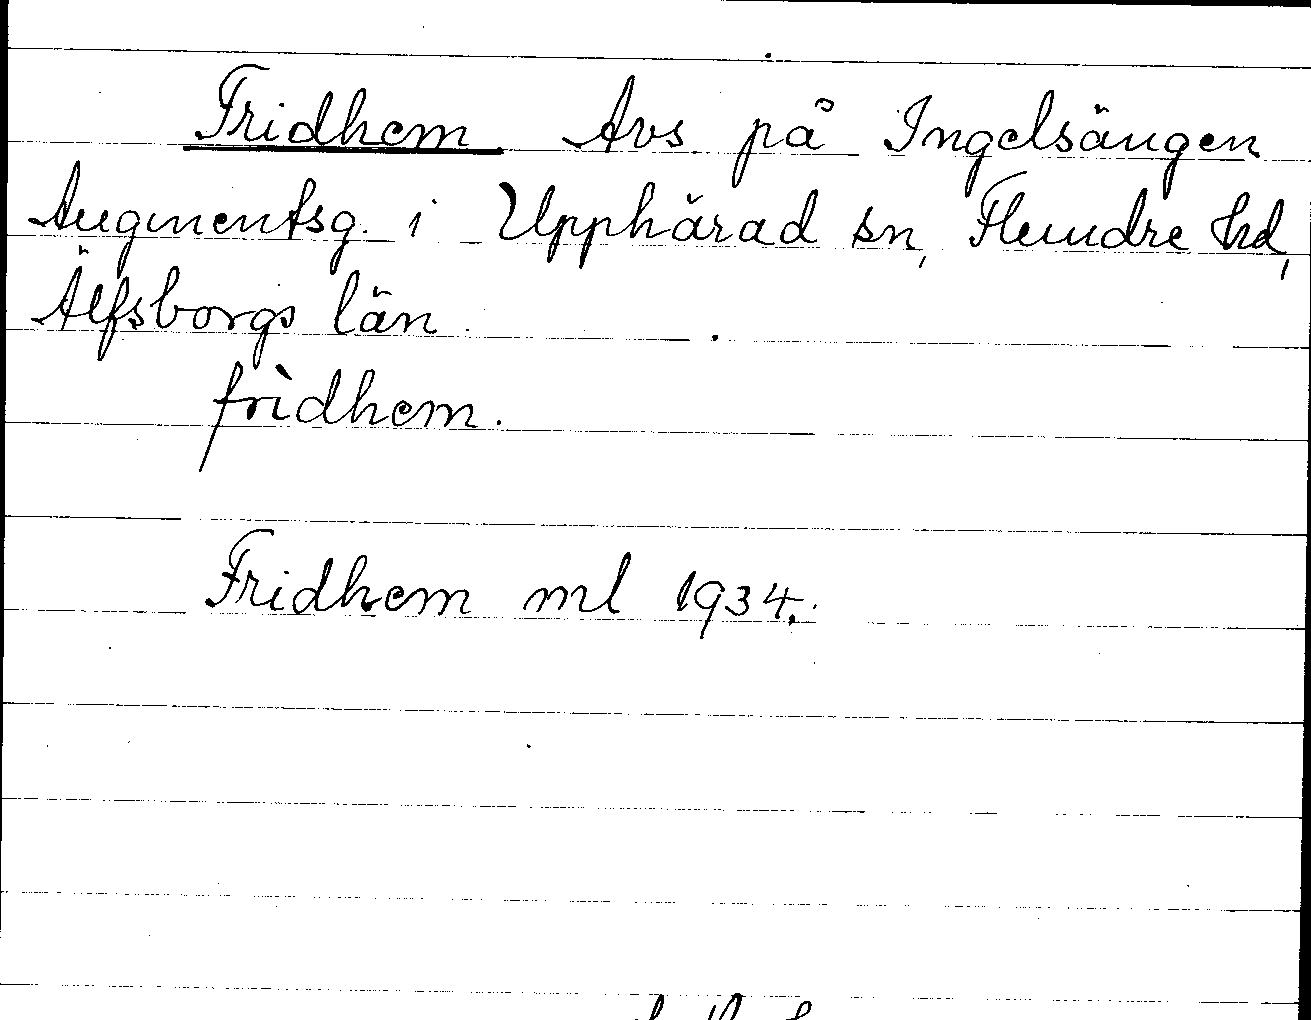 Fridhem Avs. på Ingelsängen
Augmentsg. i Upphärad sn, Flundre hd,
Älfsborgs län.
fridhem.
Fridhem ml 1934.